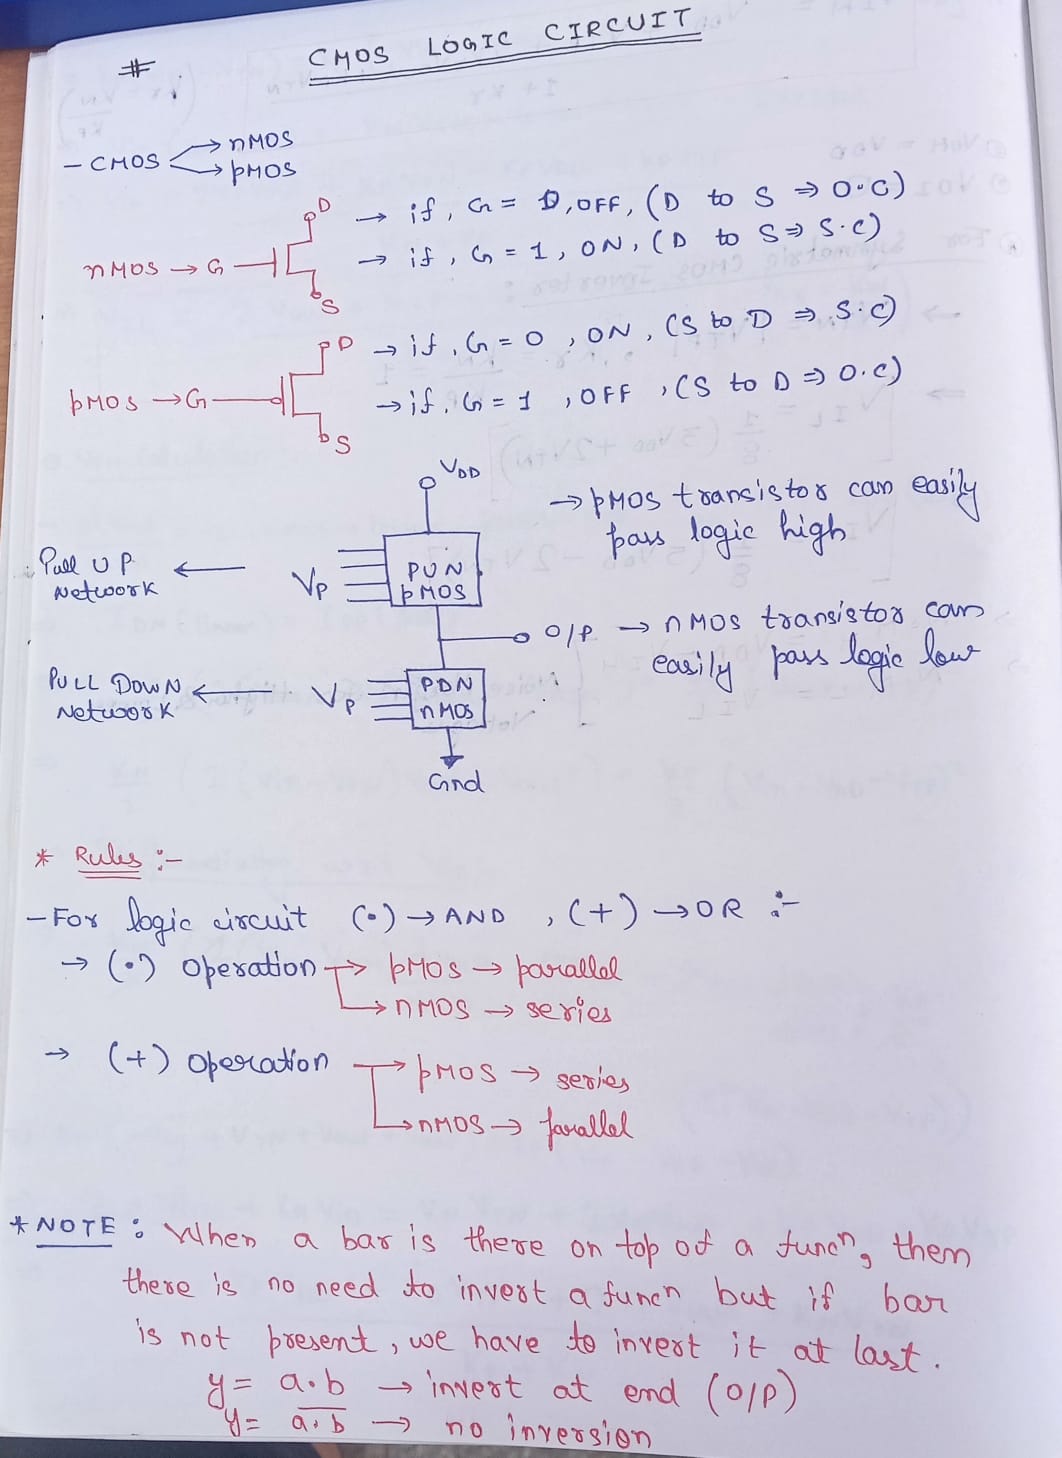 #
CMOS LOGIC CIRCUIT
- CMOS → nMOS
→ pMOS
nMOS → G
D
S
→ if, G = 0, OFF, (D to S ⇒ O.C)
→ if, G = 1, ON, (D to S ⇒ S.C)
pMOS → G
D
S
→ if, G = 0, ON, (S to D ⇒ S.C)
→ if, G = 1, OFF, (S to D ⇒ O.C)
VDD
→ pMOS transistor can easily
pass logic high
Pull UP
Network
←
Vp
PUN
pMOS
O/P → nMOS transistor can
easily pass logic low
PULL DOWN
Network
←
Vp
PDN
nMOS
Gnd
* Rules :-
- For logic circuit (•) → AND, (+) → OR :-
→ (•) operation → pMOS → parallel
→ nMOS → series
→ (+) operation → pMOS → series
→ nMOS → parallel
* NOTE : When a bar is there on top of a funcn, then
there is no need to invert a funcn but if bar
is not present, we have to invert it at last.
y = a.b → invert at end (O/P)
y = a̅.̅b̅ → no inversion